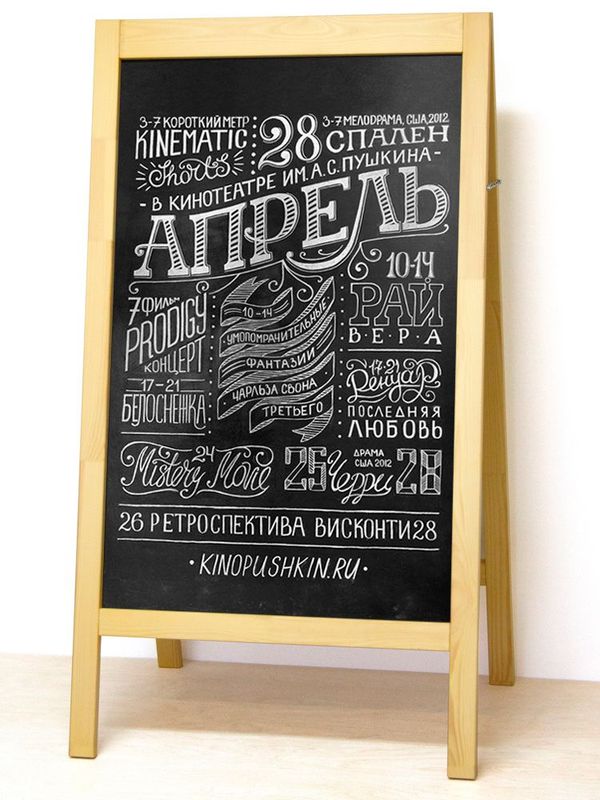 3-7 КОРОТКИЙ МЕТР
KINEMATIC
Shorts
3-7 МЕЛОДРАМА, США, 2012
28 СПАЛЕН
- В КИНОТЕАТРЕ ИМ. А. С. ПУШКИНА -
АПРЕЛЬ
7 ФИЛЬМ
PRODIGY
КОНЦЕРТ
17-21
БЕЛОСНЕЖКА
10-14
УМОПОМРАЧИТЕЛЬНЫЕ
ФАНТАЗИИ
ЧАРЛЬЗА СВОНА
ТРЕТЬЕГО
10-14
РАЙ
ВЕРА
17-21
Ренуар
ПОСЛЕДНЯЯ
ЛЮБОВЬ
24
Mistery Movie
ДРАМА
США 2012
25 Черри 28
26 РЕТРОСПЕКТИВА ВИСКОНТИ 28
• KINOPUSHKIN.RU •